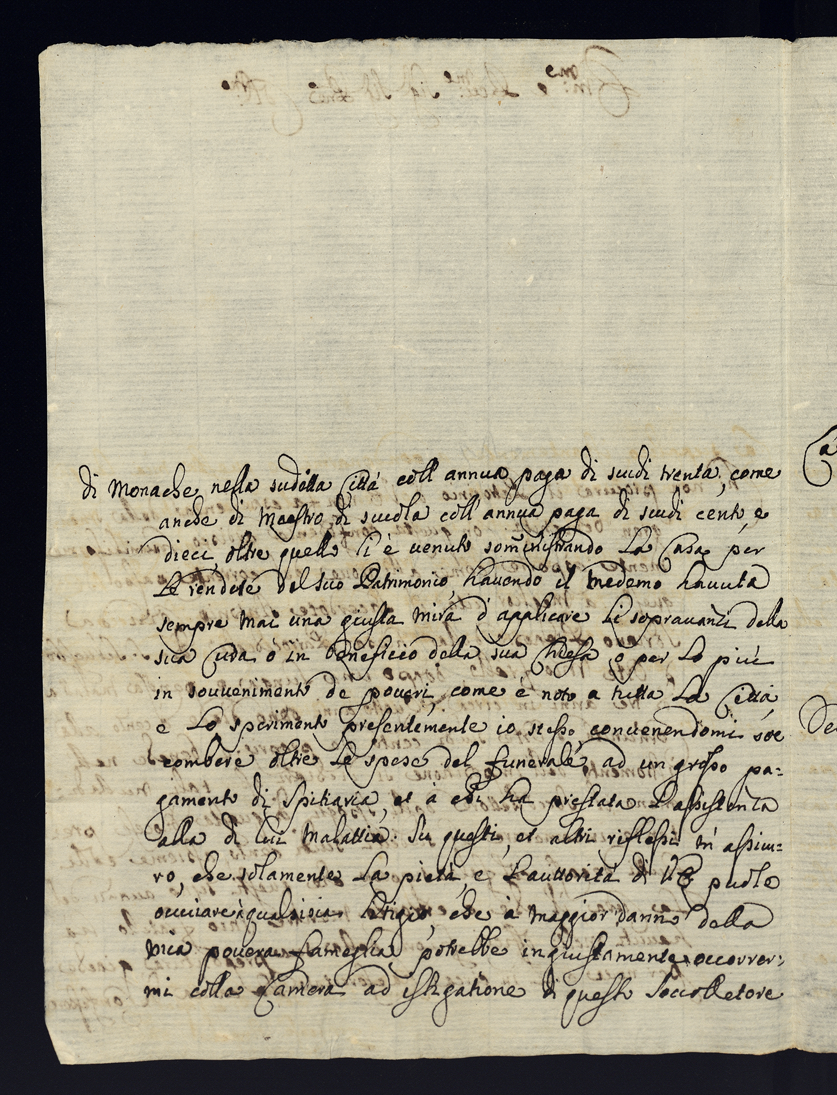 di Monache nella sudetta Città coll annua paga di scudi trenta, come
anche di Maestro di scuola coll annua paga di scudi cento e
dieci, oltre quello li è venuto som̃inistrando La Casa per
Le rendete del suo Patrimonio, havendo il medemo havuta
sempre mai una giusta mira d'applicare li sopravanzi della
sua Cura ò in beneficio della sua Chiesa, ò per Lo più
in souvenimento de poveri, come è noto a tutta La Città
e Lo sperimento presentemente io stesso convenendomi soc
combere oltre Le spese del funerale, ad un grosso pa=
gamento di Spitiaria, et à chi ha prestata L'assistenza
alla di lui Malattia. Su questi, et altri riflessi m'assicu=
ro, che solamente La pietà e L'auttorità di V E puole
ovviare qualsisia Litigio, che à maggior danno della
mia povera fameglia potrebbe ingiustamente occorrer=
mi colla Camera ad istigatione di questo Soccolletore